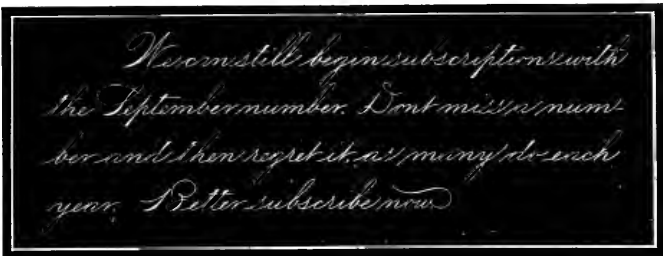 We can still begin subscriptions with
the September number. Dont miss a num-
ber and then regret it as many do each
year. Better subscribe now.